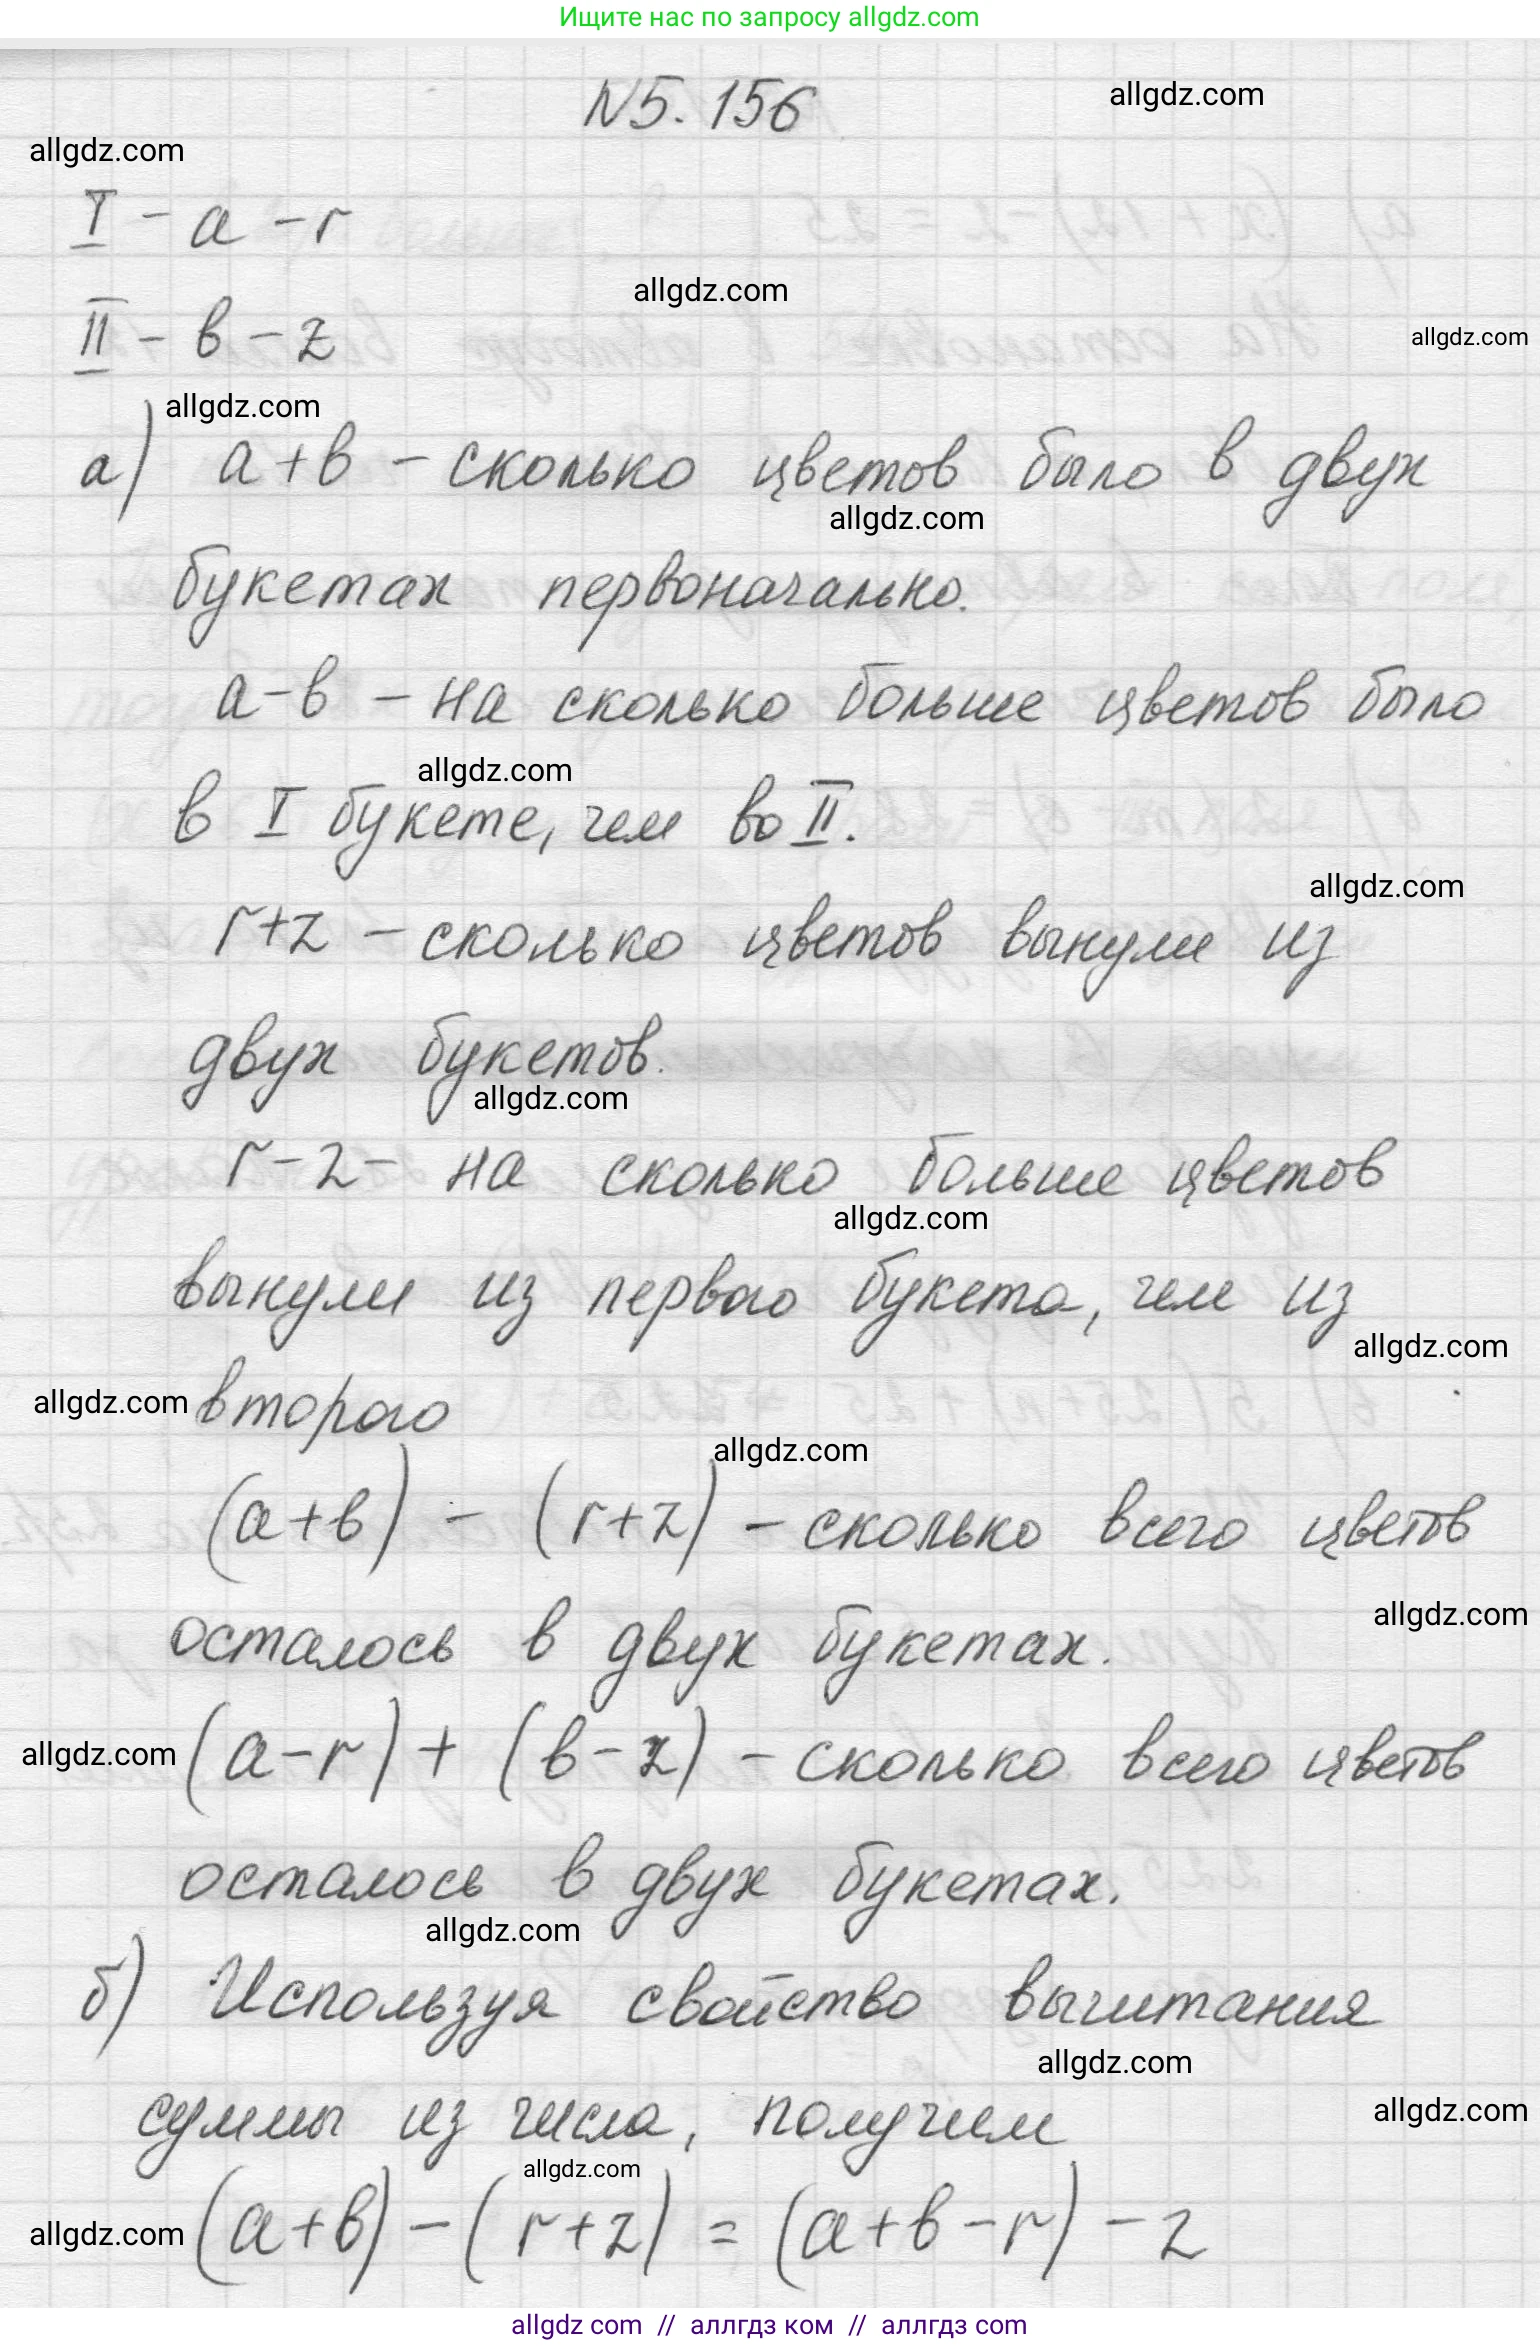 Ищите нас по запросу allgdz.com
N5.156
allgdz.com
allgdz.com
I - a - r
allgdz.com
II - в - z
allgdz.com
allgdz.com
а) a+в - сколько цветов было в двух
allgdz.com
букетах первоначально.
a-в - на сколько больше цветов было
allgdz.com
в I букете, чем во II.
allgdz.com
r+z - сколько цветов вынули из
двух букетов.
allgdz.com
r-z- на сколько больше цветов
allgdz.com
вынули из первого букета, чем из
allgdz.com
allgdz.com
второго
allgdz.com
(a+в) - (r+z) - сколько всего цветов
allgdz.com
осталось в двух букетах.
allgdz.com
(a-r)+(в-z) - сколько всего цветов
осталось в двух букетах.
allgdz.com
б) Используя свойство вычитания
allgdz.com
allgdz.com
суммы из числа, получим
allgdz.com
allgdz.com
(a+в)-(r+z)=(a+в-r)-z
allgdz.com // аллгдз ком // аллгдз com